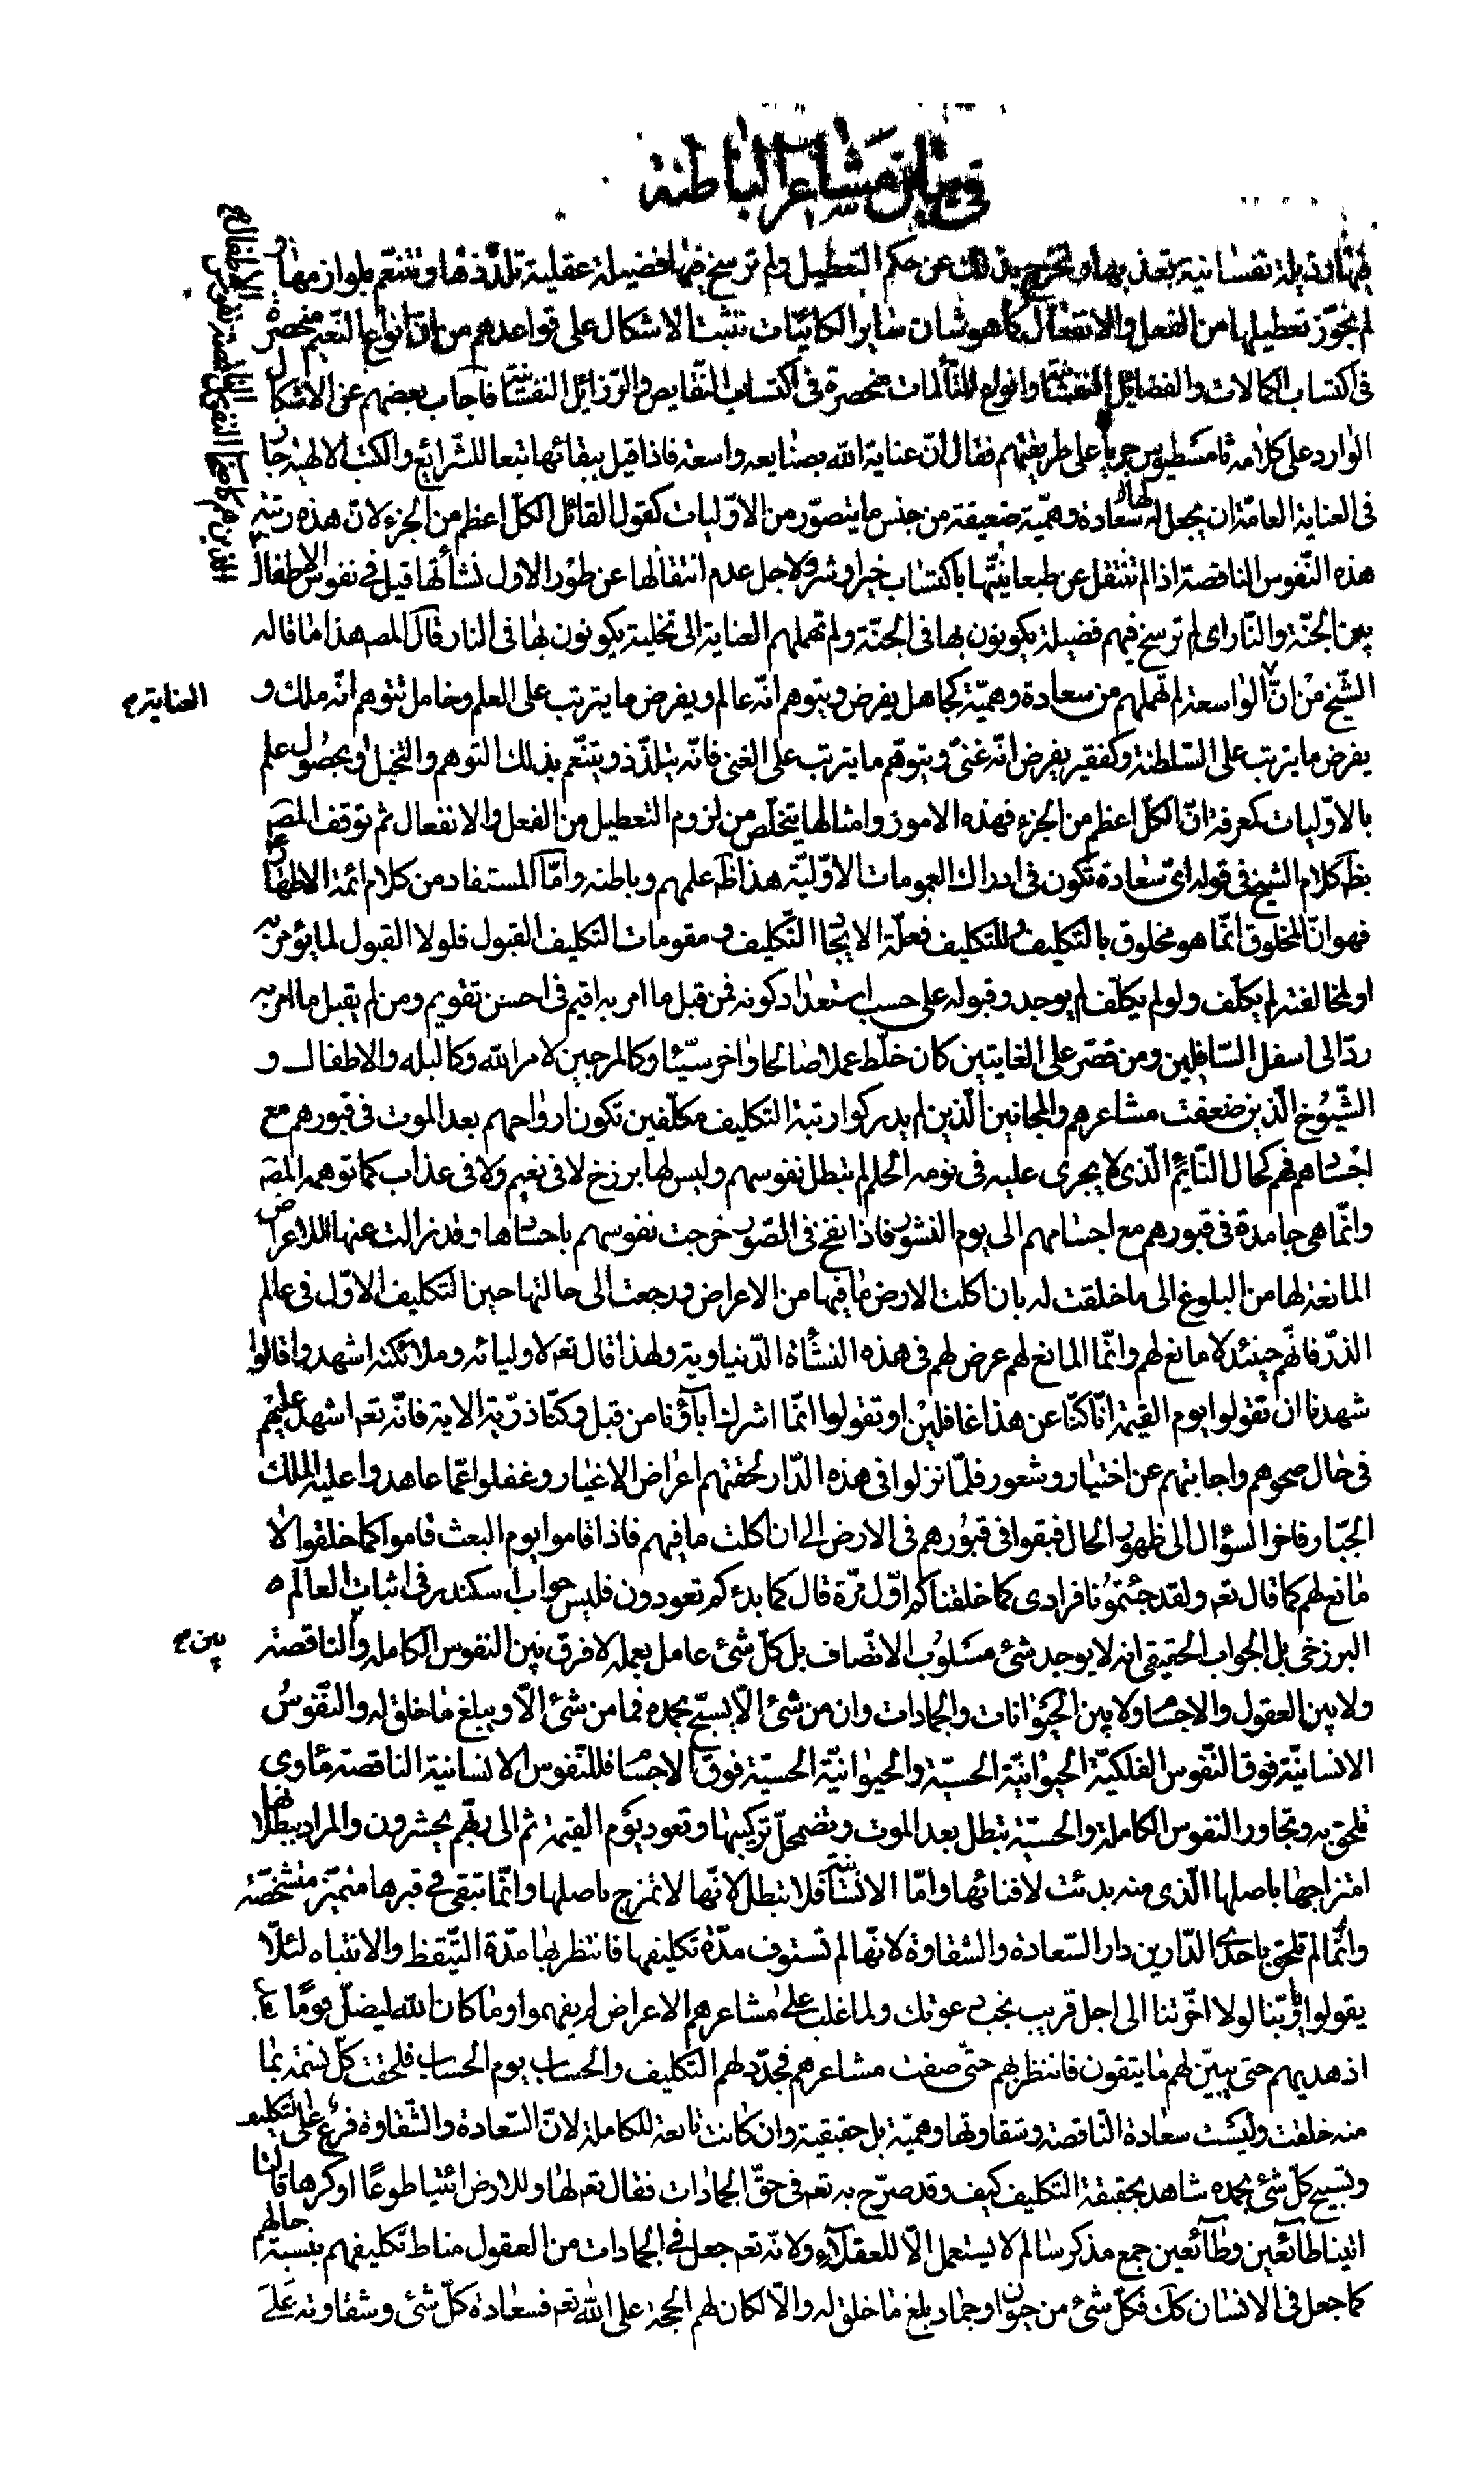 في بيان مشاعر الباطنة
فيها رذيلة نفسانية تعذب بها وتخرج بذلك عن حكم التعطيل ولم ترسخ فيها فضيلة عقلية تلذذها وتتنعم بلوازمها و
لم يجوّز تعطيلها من الفعل والانفعال كما هو شان ساير الكائنات تثبت الاشكال على قواعدهم من انّ انواع النّعيم منحصرة
فى اكتساب الكمالات والفضائل النفسانية وانواع التألمات منحصرة فى اكتساب النّقايص والرّذائل النفسانية فاجاب بعضهم عن الاشكال
الوارد على كلامه ثامسطيوس جريا على طريقتهم فقال انّ عناية الله بصنايعه واسعة فاذا قيل ببقائها تبعا للشرائع والكتب الالهية جاز
فى العناية العامّة ان يجعل لها سعادة وهميّة ضعيفة من جنس ما يتصوّر من الاوّليات كقول القائل الكلّ اعظم من الجزء لانّ هذه رتبة
هذه النّفوس الناقصة اذا لم تنتقل عن طبعانيّتها باكتساب خير او شر ولاجل عدم انتقالها عن طور الاول نشأتها قيل فى نفوس الاطفال
بين الجنّة والنّار اى لم ترسخ فيهم فضيلة يكونون بها فى الجنّة ولم تهملهم العناية الى تخلية يكونون بها فى النار قال المص هذا ما قاله
الشّيخ من انّ الواسعة لم تهملهم من سعادة وهميّة كجاهل يفرض ويتوهم انّه عالم ويفرض ما يترتب على العلم وخامل تتوهم انّه ملك و
العناية
يفرض ما يترتب على السّلطنة وكفقير يفرض انّه غنىّ ويتوهّم ما يترتب على الغنى فانّه يتلذّذ ويتنّعم بذلك التوهم والتخيل وبحصول علم
بالاوّليات كمعرفة انّ الكلّ اعظم من الجزء فهذه الامور وامثالها يتخلّص من لزوم التعطيل من الفعل والانفعال ثم توقف المصَ
بظ كلام الشيخ فى قوله اىّ سعادة تكون فى ادراك العمومات الاوّليّة هذا ظ علمهم وباطنه وامّا المستفاد من كلام ائمة الاطهار
فهو انّ المخلوق انّما هو مخلوق بالتكليف وللتكليف فعلّة الايجاد التّكليف ومقومات التكليف القبول فلولا القبول لما يؤمن به
او لمخالفته لم يكلّف ولو لم يكلّف لم يوجد وقبوله على حسب استعداد كونه فمن قبل ما امر به اقيم فى احسن تقويم ومن لم يقبل ما امر به
ردّ الى اسفل السّافلين ومن قصّر على الغايتين كان خلّط عملا صالحا واخر سيّئا وكالمرجين لامر الله وكالبله والاطفال و
الشّيوخ الّذين ضعفت مشاعرهم والمجانين الّذين لم يدركوا رتبة التكليف مكلّفين تكون ارواحهم بعد الموت فى قبورهم مع
اجسادهم فهم كحال النّايم الّذى لا يجرى عليه فى نومه الحلم لم تبطل نفوسهم وليس لها برزخ لا فى نعيم ولا فى عذاب كما توهمه المصَ
وانّما هى جامدة فى قبورهم مع اجسامهم الى يوم النشور فاذا نفخ فى الصّور خرجت نفوسهم باجسادها وقد زالت عنها الاعراض
المانعة لها من البلوغ الى ما خلقت له بان اكلت الارض ما فيها من الاعراض ورجعت الى حالتها حين التكليف الاوّل فى عالم
الذرّ فانّهم حينئذ لا مانع لهم وانّما المانع لهم عرض لهم فى هذه النشأة الدّنياوية ولهذا قال تعه لاوليائه وملائكته اشهدوا قالوا
شهدنا ان تقولوا يوم القيمة انّا كنّا عن هذا غافلين او تقولوا انّما اشرك اباؤنا من قبل وكنّا ذرّية الاية فانّه تعه اشهد عليهم
فى حال صحوهم واجابتهم عن اختيار وشعور فلمّا نزلوا فى هذه الدّار لحقتهم اعراض الاغيار وغفلوا عمّا عاهدوا عليه الملك
الجبّار فاخر السؤال الى ظهور الحال فبقوا فى قبورهم فى الارض الى ان اكلت ما فيهم فاذا قاموا يوم البعث قاموا كما خلقوا لا
مانع لهم كما قال تعه ولقد جئتمونا فرادى كما خلقناكم اوّل مرّة قال كما بدءكم تعودون فليس جواب اسكندر فى اثبات العالم
البرزخى بل الجواب الحقيقى انه لا يوجد شئ مسلوب الاتّصاف بل كلّ شئ عامل بعمله لا فرق بين النفوس الكاملة والناقصة
بين
ولا بين العقول والاجساد ولا بين الحيوانات والجمادات وان من شئ الّا يسبّح بحمده فما من شئ الّا ويبلغ ما خلق له والنّفوس
الانسانيّة فوق النّفوس الفلكيّة الحيوانيّة الحسيّة والحيوانيّة الحسيّة فوق الاجساد فللنّفوس الانسانية الناقصة مأوى
تلحق به وتجاور النفوس الكاملة والحسيّة تبطل بعد الموت وتضمحلّ تركيبها وتعود يوم القيمة ثم الى ربّهم يحشرون والمراد ببطلانها
امتزاجها باصلها الّذى منه بدئت لا فنائها وامّا الانسانية فلا تبطل لانّها لا تمزج باصلها وانّما تبقى فى قبرها متميّزة متشخّصة
وانّما لم تلحق باحدى الدّارين دار السّعادة والشقاوة لانّها لم تستوف مدّة تكليفها فانتظر بها مدّة التّيقظ والانتباه لئلّا
يقولوا ربّنا لولا اخّرتنا الى اجل قريب نجب دعوتك ولما غلب على مشاعرهم الاعراض لم يفهموا وما كان الله ليضلّ قومًا بعد
اذ هديهم حتى يبيّن لهم ما يتقون فانتظر بهم حتّى صفت مشاعرهم فجدّد لهم التكليف والحساب يوم الحساب فلحقت كلّ نسمة بما
منه خلقت وليست سعادة النّاقصة وشقاوتها وهميّة بل حقيقية وان كانت تابعة للكاملة لانّ السّعادة والشّقاوة فرع على التكليف
وتسبيح كلّ شئ بحمده شاهد بحقيقة التكليف كيف وقد صرّح به تعه فى حقّ الجمادات فقال تعه لها وللارض ائتيا طوعًا او كرها قالتا
اتينا طائعين وطائعين جمع مذكر سالم لا يستعمل الّا للعقلاء ولانّه تعه جعل فى الجمادات من العقول مناط تكليفهم بنسبة حالهم
كما جعل فى الانسان كك فكلّ شئ من حيوان او جماد بلغ ما خلق له والّا لكان لهم الحجة على الله تعه فسعادة كلّ شئ وشقاوته على